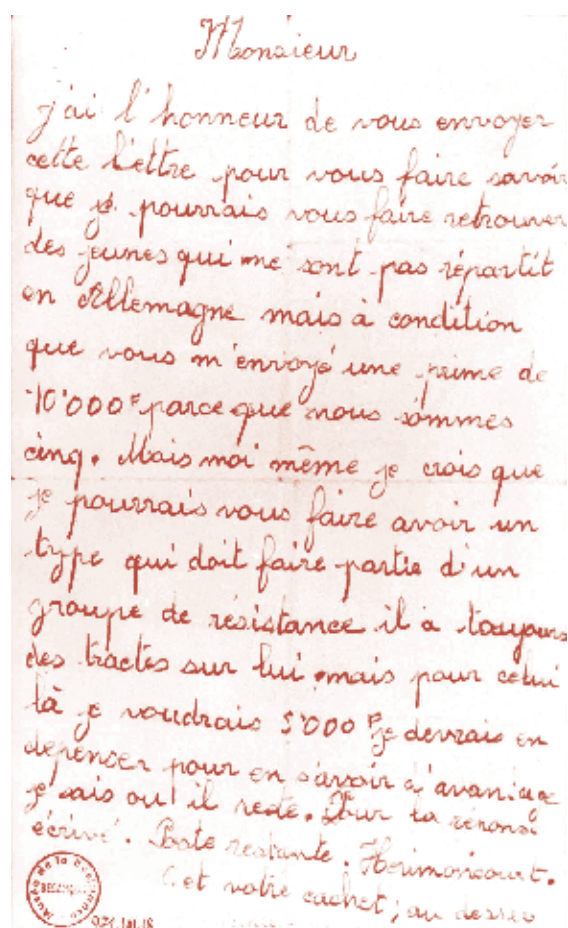 Monsieur
j'ai l'honneur de vous envoyer
cette lettre pour vous faire savoir
que je pourrais vous faire retrouver
des jeunes qui ne sont pas répartit
en Allemagne mais à condition
que vous m'envoyé une prime de
10'000F parce que nous sommes
cinq. Mais moi même je crois que
je pourrais vous faire avoir un
type qui doit faire partie d'un
groupe de résistance il a toujours
des tractes sur lui mais pour celui
là je voudrais 5'000F je devrais en
depenser pour en savoir d'avantage
je sais ou il reste. Pour la réponse
écrivé. Poste restante. Herimoncourt.
et votre cachet; au desser
Musée de la Résistance
BESANÇON